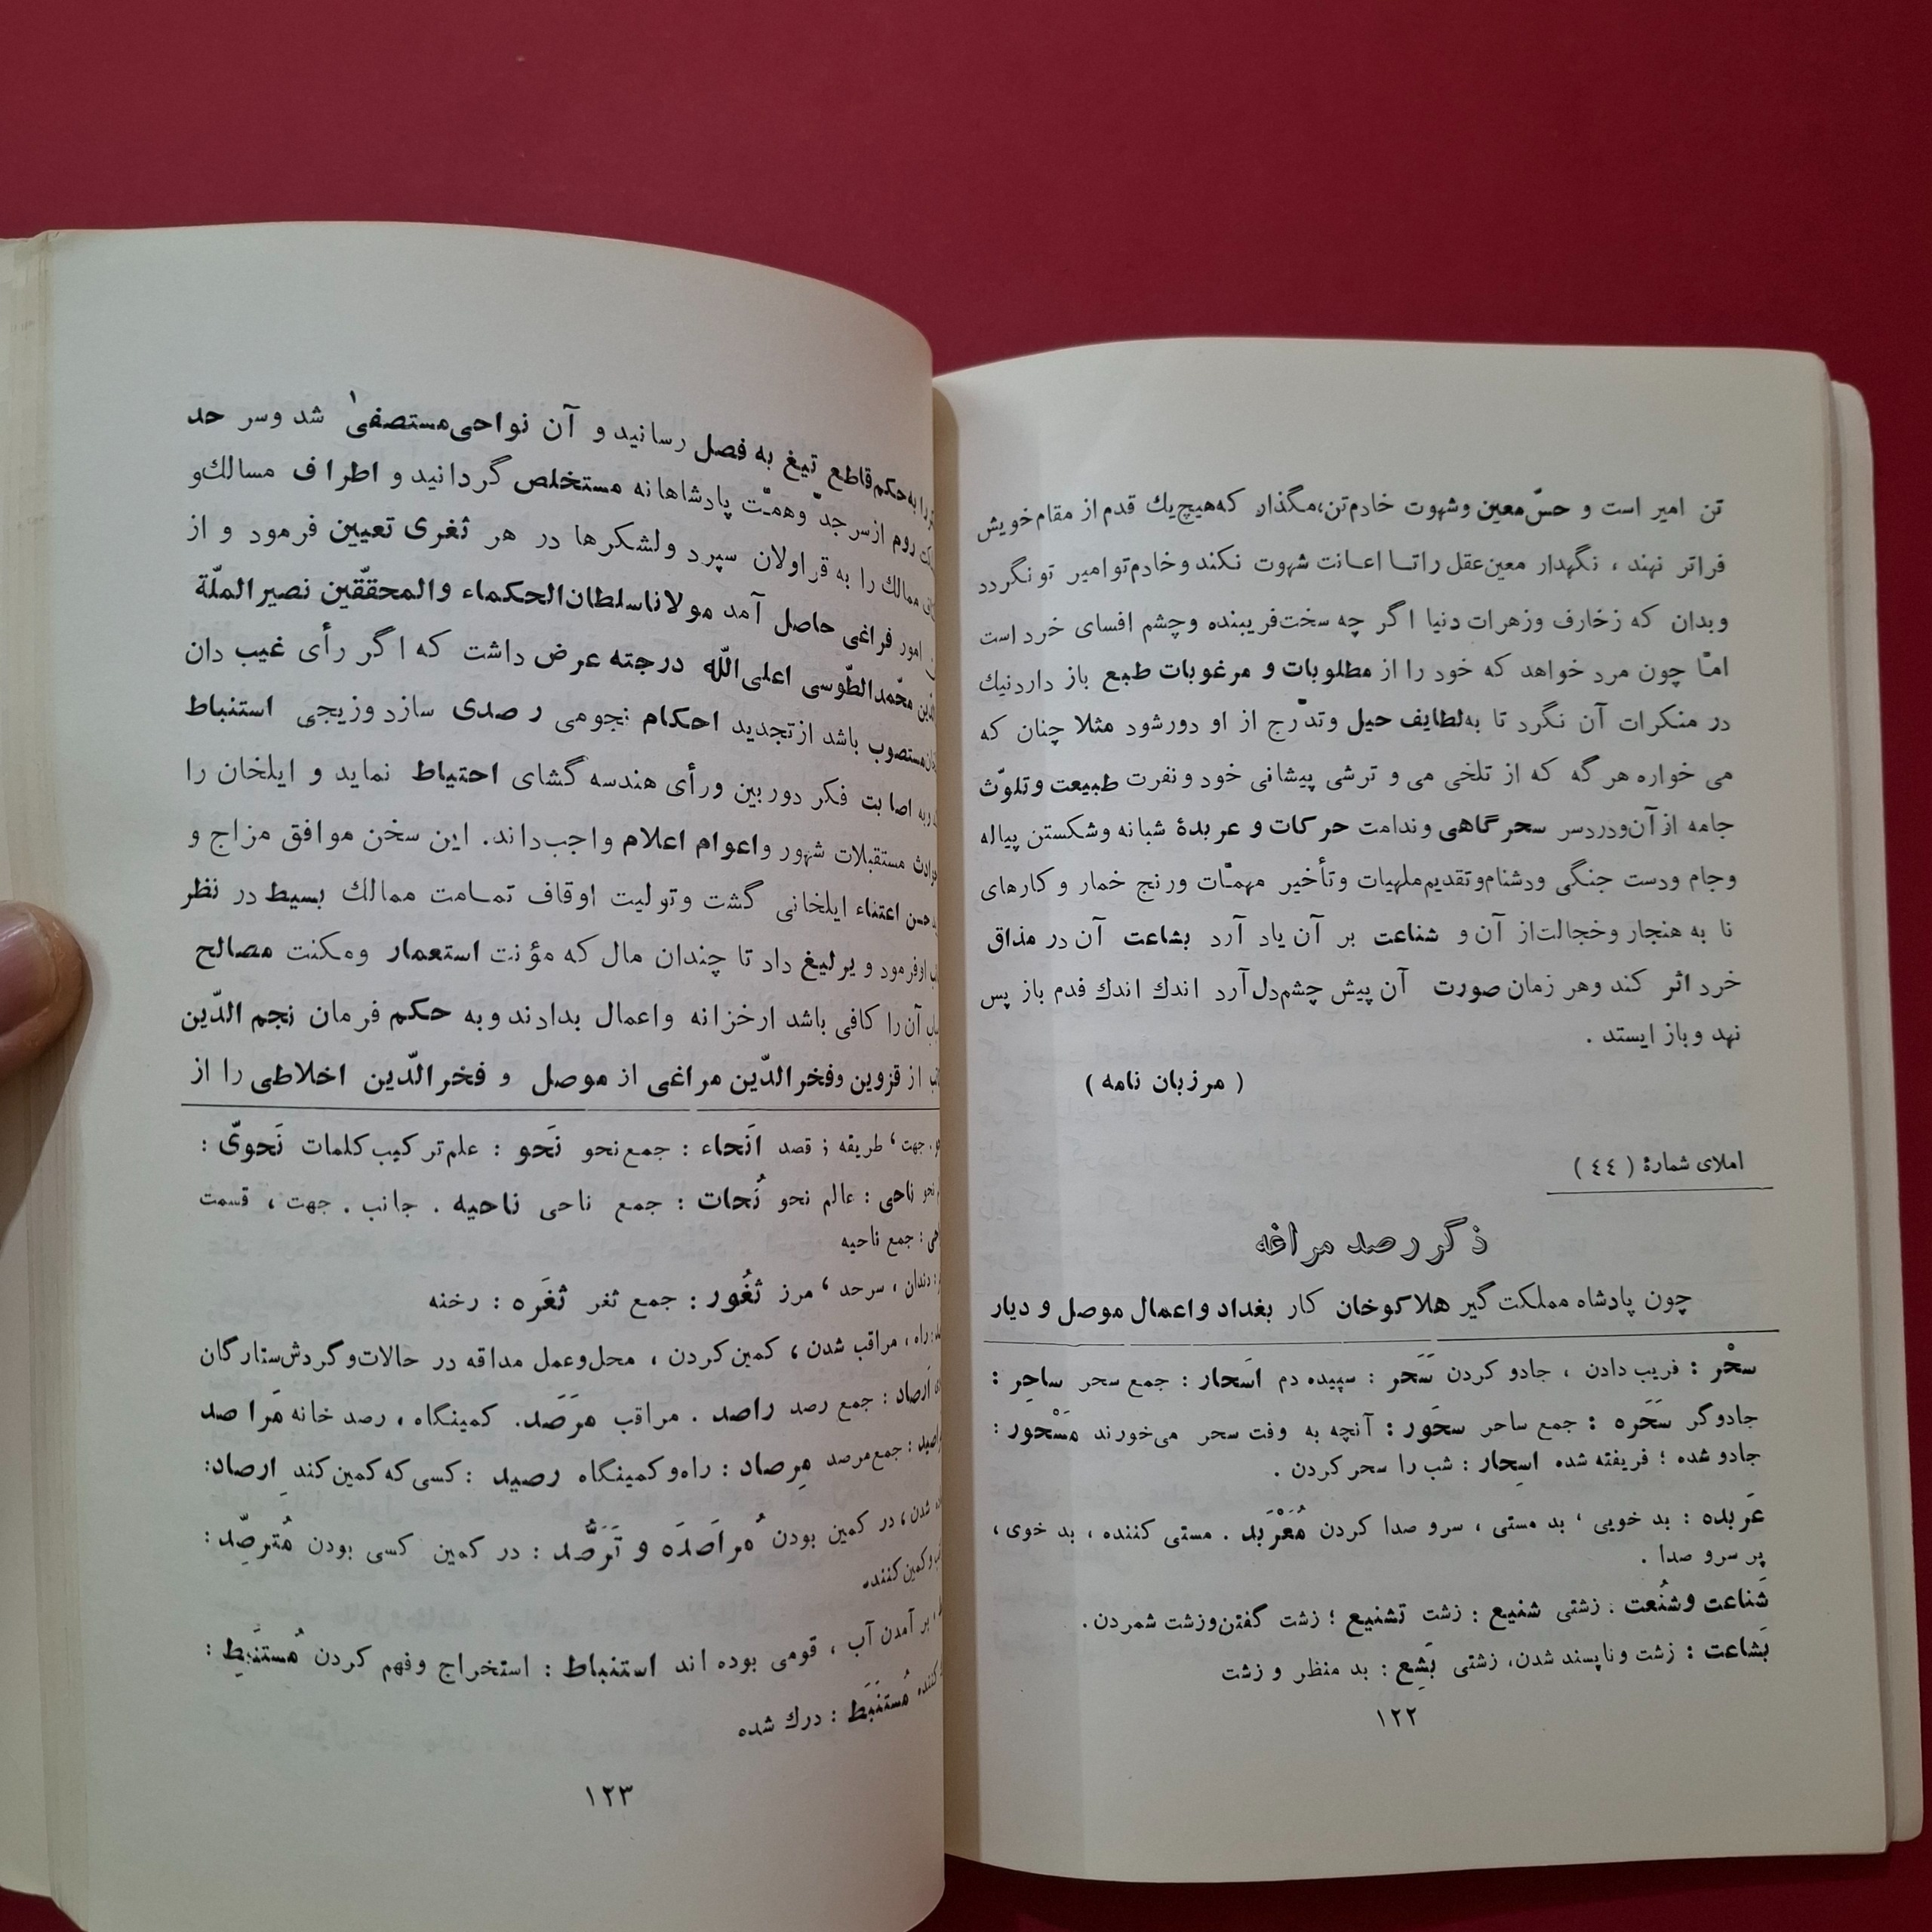 تن امیر است و حسّ معین وشهوت خادم‌تن،مگذار که‌هیچ‌یك قدم از مقام‌خویش
فراتر نهند ، نگهدار معین‌عقل راتــا اعـانت شهوت نکند وخادم‌توامیر تونگردد
وبدان که زخارف وزهرات دنیا اگر چه سخت‌فریبنده وچشم افسای خرد است
امّا چون مرد خواهد که خود را از مطلوبات و مرغوبات طبع باز داردنیك
در منکرات آن نگرد تا به‌لطایف حیل وتدّرج از او دورشود مثلا چنان که
می خواره هرگه که از تلخی می و ترشی پیشانی خود ونفرت طبیعت وتلوّث
جامه از آن‌ودردسر سحرگاهی وندامت حرکات و عربدهٔ شبانه وشکستن پیاله
وجام ودست جنگی ودشنام‌وتقدیم‌ملهیات وتأخیر مهمّات ورنج خمار وکارهای
نا به هنجار وخجالت‌از آن و شناعت بر آن یاد آرد بشاعت آن در مذاق
خرد اثر کند وهر زمان صورت آن پیش چشم‌دل‌آرد اندك اندك فدم باز پس
نهد وباز ایستد .
( مرزبان نامه )
املای شمارهٔ ( ٤٤ )
ذکر رصد مراغه
چون پادشاه مملکت گیر هلاکوخان کار بغداد واعمال موصل و دیار
سحْر : فریب دادن ، جادو کردن سَحَر : سپیده دم اَسحار : جمع سحر ساحِر :
جادوگر سَحَره : جمع ساحر سحَور : آنچه به وفت سحر می‌خورند مَسْحور :
جادو شده ؛ فریفته شده اسِحار : شب را سحر کردن .
عَربده : بد خویی ، بد مستی ، سرو صدا کردن مُعَرْبَد . مستی کننده ، بد خوی ،
پر سرو صدا .
شَناعت وشُنعت . زشتی شنیع : زشت تشنیع ؛ زشت گفتن‌وزشت شمردن .
بَشاعت : زشت وناپسند شدن، زشتی بَشِع : بد منظر و زشت
١٢٢
را به‌حکم‌قاطع تیغ به فصل رسانید و آن نواحی‌مستصفی١ شد وسر حد
روم ازسر جدّ وهمّت پادشاهانه مستخلص گردانید و اطراف مسالك‌و
ممالك را به قراولان سپرد ولشکرها در هر ثغری تعیین فرمود و از
امور فراغی حاصل آمد مولاناسلطان‌الحکماء والمحقّقین نصیرالملّة
محمّدالطّوسی اعلی‌اللّه درجته عرض داشت که اگر رأی غیب دان
مستصوب باشد ازتجدید احکام نجومی رصدی سازد وزیجی استنباط
اصابت فکر دوربین ورأی هندسه گشای احتیاط نماید و ایلخان را
مستقبلات شهور واعوام اعلام واجب‌داند. این سخن موافق مزاج و
حسن اعتناء ایلخانی گشت وتولیت اوقاف تمـامت ممالك بسیط در نظر
اوفرمود و یرلیغ داد تا چندان مال که مؤنت استعمار ومکنت مصالح
آن‌را کافی باشد ارخزانه واعمال بدادند وبه حکم فرمان نجم الدّین
از قزوین وفخرالدّین مراغی از موصل و فخرالدّین اخلاطی را از
جهت ، طریقه ; قصد اَنحاء : جمع نحو نَحو : علم‌ترکیب کلمات نَحویّ :
نحو ناحی : عالم نحو نُحات : جمع ناحی ناحیه . جانب . جهت ، قسمت
: جمع ناحیه
دندان ، سرحد ، مرز ثُغُور : جمع ثغر ثغَره : رخنه
راه ، مراقب شدن ، کمین کردن ، محل‌وعمل مداقه در حالات‌وگردش‌ستارگان
اَرصاد : جمع رصد راصد . مراقب مَرَصَد. کمینگاه ، رصد خانه مَراصد
: جمع‌مرصد مِرصاد : راه‌وکمینگاه رصید : کسی‌که‌کمین‌کند اِرصاد:
شدن ، در کمین بودن مُراصَدَه و تَرَصُّد : در کمین کسی بودن مُترصِّد :
وکمین‌کننده
بر آمدن آب ، قومی بوده اند استنباط : استخراج وفهم کردن مُستنَبِط :
کننده مُستنَبَط : درك شده
١٢٣